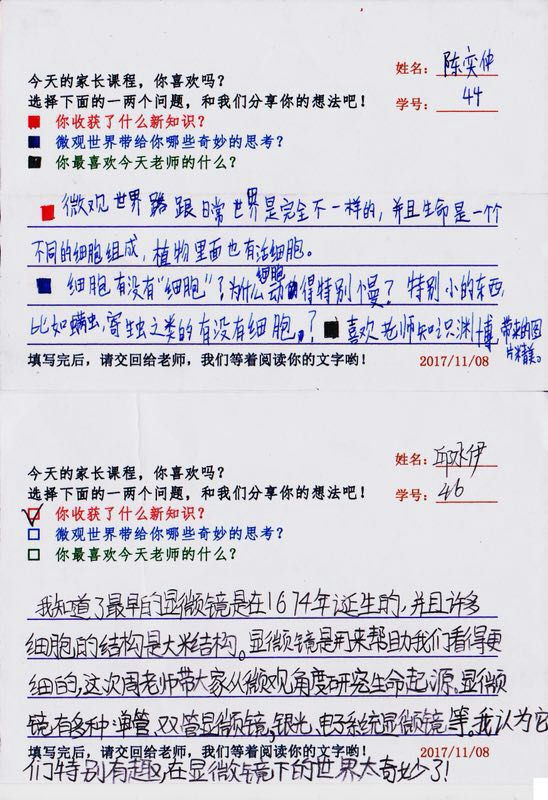 姓名：陈奕仲
今天的家长课程，你喜欢吗？
选择下面的一两个问题，和我们分享你的想法吧！
学号：44
你收获了什么新知识？
微观世界带给你哪些奇妙的思考？
你最喜欢今天老师的什么？
微观世界跟日常世界是完全不一样的，并且生命是一个个
不同的细胞组成，植物里面也有活细胞。
细胞有没有“细胞”？为什么细胞动的得特别慢？特别小的东西，
比如螨虫，寄生虫之类的有没有细胞。？喜欢老师知识渊博，带来的图
片精美。
填写完后，请交回给老师，我们等着阅读你的文字哟！ 2017/11/08
姓名：邱永伊
今天的家长课程，你喜欢吗？
选择下面的一两个问题，和我们分享你的想法吧！
学号：46
你收获了什么新知识？
微观世界带给你哪些奇妙的思考？
你最喜欢今天老师的什么？
我知道了最早的显微镜是在1674年诞生的，并且许多
细胞的结构是大米结构。显微镜是用来帮助我们看得更
细的，这次周老师带大家从微观角度研究生命起源。显微
镜有多种单管、双管显微镜，银光、电子系统显微镜等。我认为它
填写完后，请交回给老师，我们等着阅读你的文字哟！ 2017/11/08
们特别有趣，在显微镜下的世界太奇妙了！